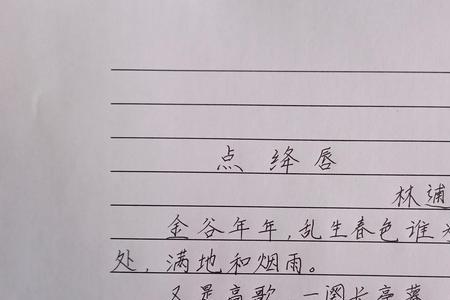 点绛唇
林逋
金谷年年,乱生春色谁
处,满地和烟雨。
又是高歌,一阕长亭暮